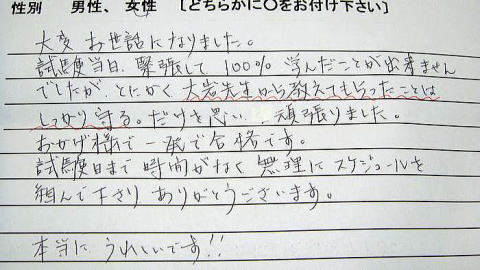 性別　男性、女性　[どちらかに〇をお付け下さい]
大変お世話になりました。
試験当日、緊張して100% 学んだことが出来ません
でしたが、とにかく大岩先生から教えてもらったことは
しっかり守る。だけを思い、頑張りました。
おかげ様で一発で合格です。
試験日まで時間がなく無理にスケジュールを
組んで下さりありがとうございます。
本当にうれしいです!!